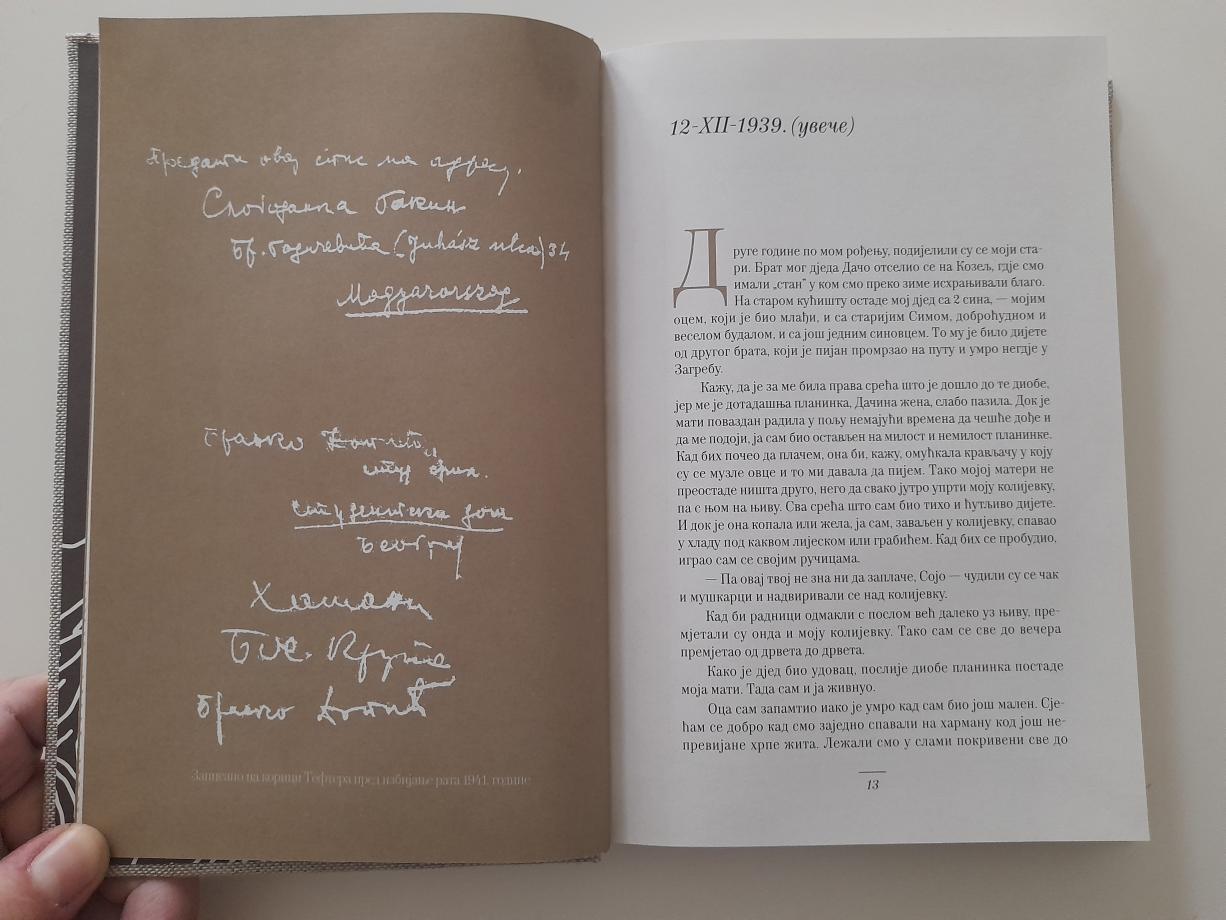 Предати овај спис на адресу.
Стојанка бакин
Бр.
Бранко Ћопић,
студ фил.
студентски дом
Београд
Хашани
Бос. Крупа
Бранко Ћопић
Записано на корици Тефтера пред избијање рата 1941. године
12-XII-1939. (увече)
Друге године по мом рођењу, подијелили су се моји ста-
ри. Брат мог дједа Дачо отселио се на Козељ, гдје смо
имали „стан” у ком смо преко зиме исхрањивали благо.
На старом кућишту остаде мој дјед са 2 сина, — мојим
оцем, који је био млађи, и са старијим Симом, доброћудном и
веселом будалом, и са још једним синовцем. То му је било дијете
од другог брата, који је пијан промрзао на путу и умро негдје у
Загребу.
Кажу, да је за ме била права срећа што је дошло до те диобе,
јер ме је дотадашња планинка, Дачина жена, слабо пазила. Док је
мати поваздан радила у пољу немајући времена да чешће дође и
да ме подоји, ја сам био остављен на милост и немилост планинке.
Кад бих почео да плачем, она би, кажу, омућкала крављачу у коју
су се музле овце и то ми давала да пијем. Тако мојој матери не
преостаде ништа друго, него да свако јутро упрти моју колијевку,
па с њом на њиву. Сва срећа што сам био тихо и ћутљиво дијете.
И док је она копала или жела, ја сам, заваљен у колијевку, спавао
у хладу под каквом лијеском или грабићем. Кад бих се пробудио,
играо сам се својим ручицама.
— Па овај твој не зна ни да заплаче, Сојо — чудили су се чак
и мушкарци и надвиривали се над колијевку.
Кад би радници одмакли с послом већ далеко уз њиву, пре-
мјетали су онда и моју колијевку. Тако сам се све до вечера
премјетао од дрвета до дрвета.
Како је дјед био удовац, послије диобе планинка постаде
моја мати. Тада сам и ја живнуо.
Оца сам запамтио иако је умро кад сам био још мален. Сје-
ћам се добро кад смо заједно спавали на харману код још не-
превијане хрпе жита. Лежали смо у слами покривени све до
13